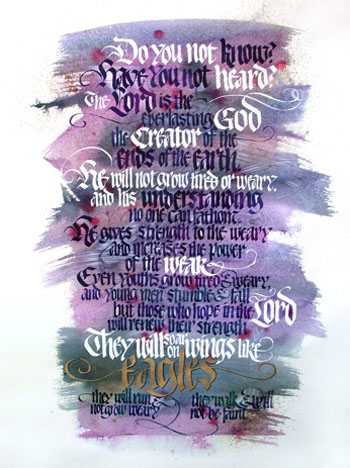 Do you not know?
Have you not heard?
The Lord is the
everlasting God
the Creator of the
ends of the earth.
He will not grow tired or weary,
and his understanding
no one can fathom.
He gives strength to the weary
and increases the power
of the weak
Even youths grow tired & weary,
and young men stumble & fall
but those who hope in the Lord
will renew their strength.
They will soar on wings like
eagles
they will run & not grow weary
they walk & will not be faint